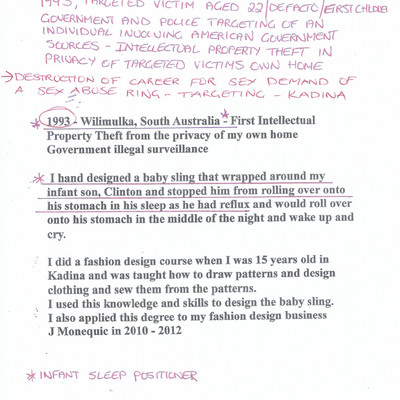 1993, TARGETED VICTIM AGED 22/DEFACTO/FIRST CHILDREN
GOVERNMENT AND POLICE TARGETING OF AN
INDIVIDUAL INVOLVING AMERICAN GOVERNMENT
SOURCES - INTELLECTUAL PROPERTY THEFT IN
PRIVACY OF TARGETED VICTIMS OWN HOME
→DESTRUCTION OF CAREER FOR SEX DEMAND OF
A SEX ABUSE RING - TARGETING - KADINA
* 1993 - Wilimulka, South Australia * - First Intellectual
Property Theft from the privacy of my own home
Government illegal surveillance
* I hand designed a baby sling that wrapped around my
infant son, Clinton and stopped him from rolling over onto
his stomach in his sleep as he had reflux and would roll over
onto his stomach in the middle of the night and wake up and
cry.
I did a fashion design course when I was 15 years old in
Kadina and was taught how to draw patterns and design
clothing and sew them from the patterns.
I used this knowledge and skills to design the baby sling.
I also applied this degree to my fashion design business
J Monequic in 2010 - 2012
* INFANT SLEEP POSITIONER